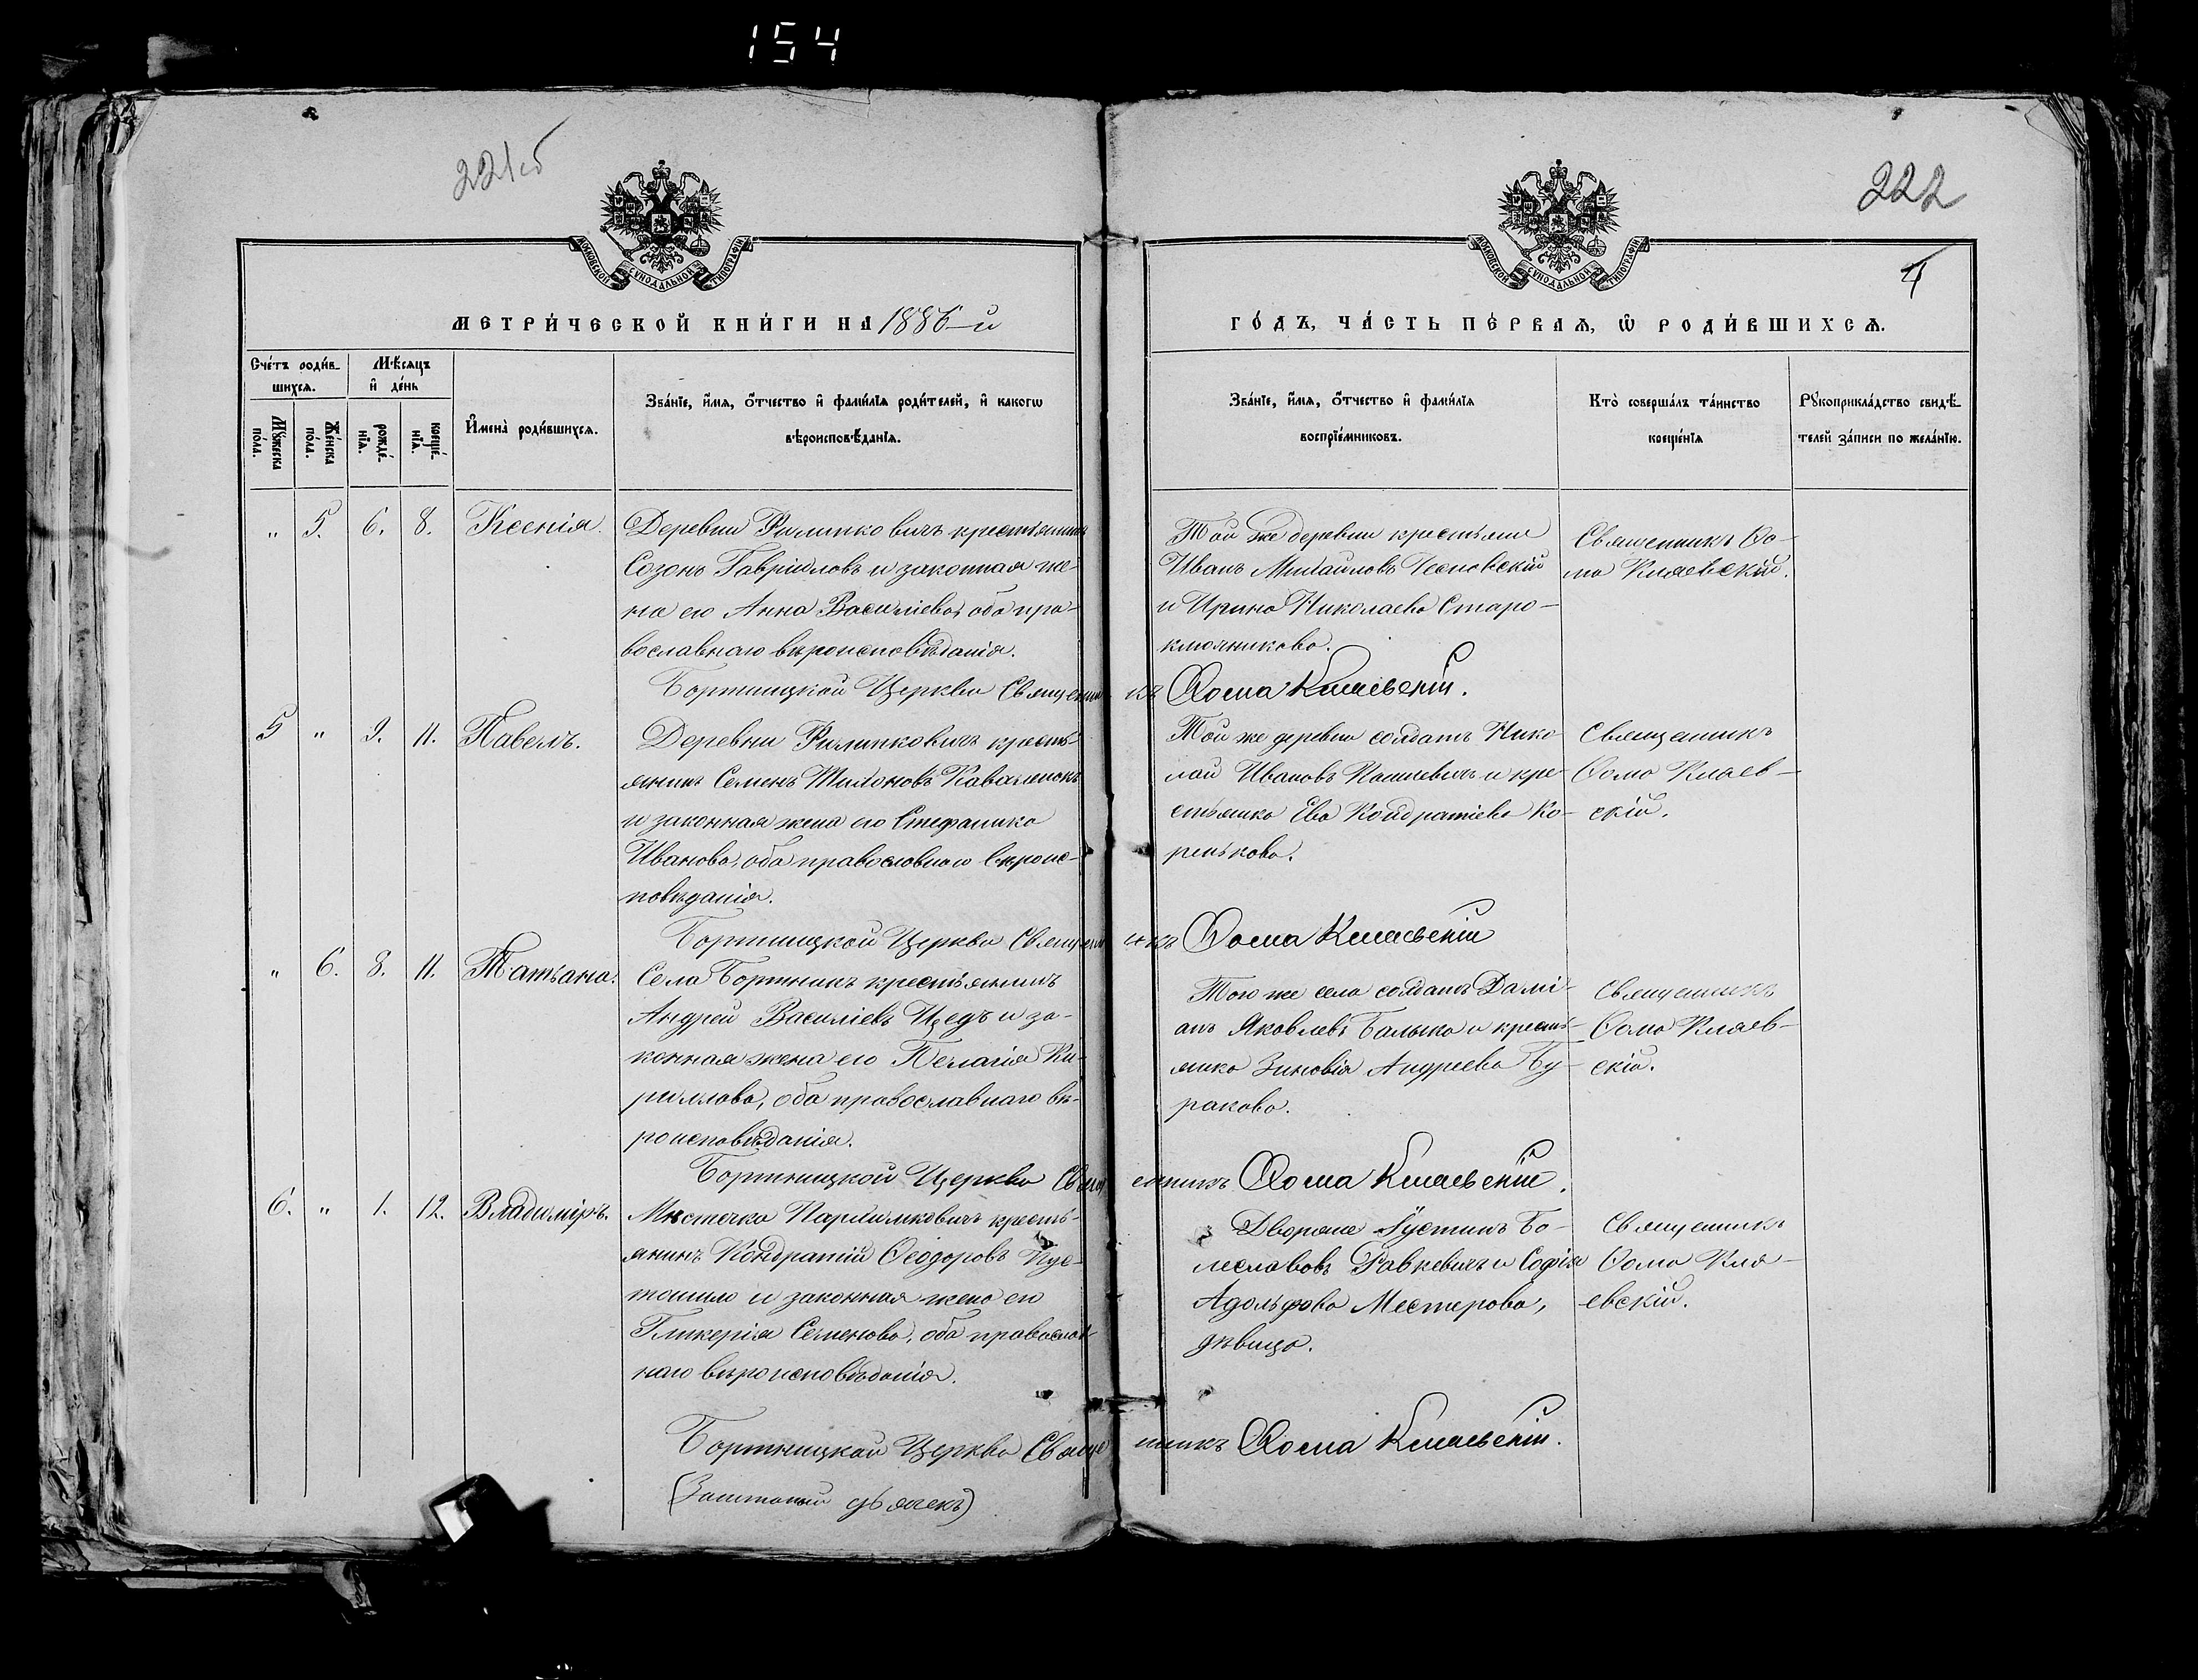 154
221об
222
4
МОСКОВСКОЙ СѴНОДАЛЬНОЙ ТИПОГРАФІИ
МОСКОВСКОЙ СѴНОДАЛЬНОЙ ТИПОГРАФІИ
МЕТРИ́ЧЕСКОЙ КНИ́ГИ НА 1886-й
ГО́ДЪ, ЧА́СТЬ ПЕ́РВАѦ, Ѿ РОДИ́ВШИХСѦ.
Сче́тъ роди́в-
шихсѧ.
Мꙋ́жеска по́ла.
Же́нска по́ла.
Мѣ́сѧцъ
и҆ де́нь
рожде́-
нїѧ.
креще́-
нїѧ.
И҆мена̀ роди́вшихсѧ.
Зва́нїе, и҆́мѧ, ѻ҆́тчество и҆ фами́лїѧ роди́телей, и҆ какогѡ
вѣроисповѣ́данїѧ.
Зва́нїе, и҆́мѧ, ѻ҆́тчество и҆ фами́лїѧ
воспрїе́мниковъ.
Кто̀ соверша́лъ та́инство
креще́нїѧ
Рꙋкоприкла́дство свидѣ́-
телей за́писи по жела́нїю.
" 5. 6. 8. Ксенія.
Деревни Филипковичъ крестьянинъ
Созонъ Гавриловъ и законная же-
на его Анна Василіева, оба пра-
вославнаго вѣроисповѣданія.
Той же деревни крестьяне
Иванъ Михайловъ Чесновскій
и Ирина Николаева Старо-
ключникова.
Священникъ Ѳо-
ма Кляевскій.
Бортницкой Церкви Священникъ Ѳома Кляевскій.
5 " 9. 11. Павелъ.
Деревни Филипковичъ кресть-
янинъ Семенъ Тихоновъ
и законная жена его Стефанида
Иванова, оба православнаго вѣроис-
повѣданія.
Той же деревни солдатъ Нико-
лай Ивановъ и кре-
стьянка Ева Кондратіева Ко-
ренькова.
Священникъ
Ѳома Кляев-
скій.
Бортницкой Церкви Священникъ Ѳома Кляевскій
" 6. 8. 11. Татьана.
Села Бортникъ крестьянинъ
Андрей Василіевъ Цедъ и за-
конная жена его Пелагія Ки-
риллова, оба православнаго вѣ-
роисповѣданія.
Того же села солдатъ Дамі-
анъ Яковлевъ Балыко и кресть-
янка Зиновія Андреева Бу-
ракова.
Священникъ
Ѳома Кляев-
скій.
Бортницкой Церкви Священникъ Ѳома Кляевскій.
6. " 1. 12. Владиміръ.
Мѣстечка Паричъ кресть-
янинъ Кондратій Ѳеодоровъ
и законная жена его
Гликерія Семенова, оба православ-
наго вѣроисповѣданія.
Дворяне Густинъ Бо-
леславовъ Равкевичъ и Софія
Адольфова Местерова,
дѣвица.
Священникъ
Ѳома Кля-
евскій.
Бортницкой Церкви Священникъ Ѳома Кляевскій.